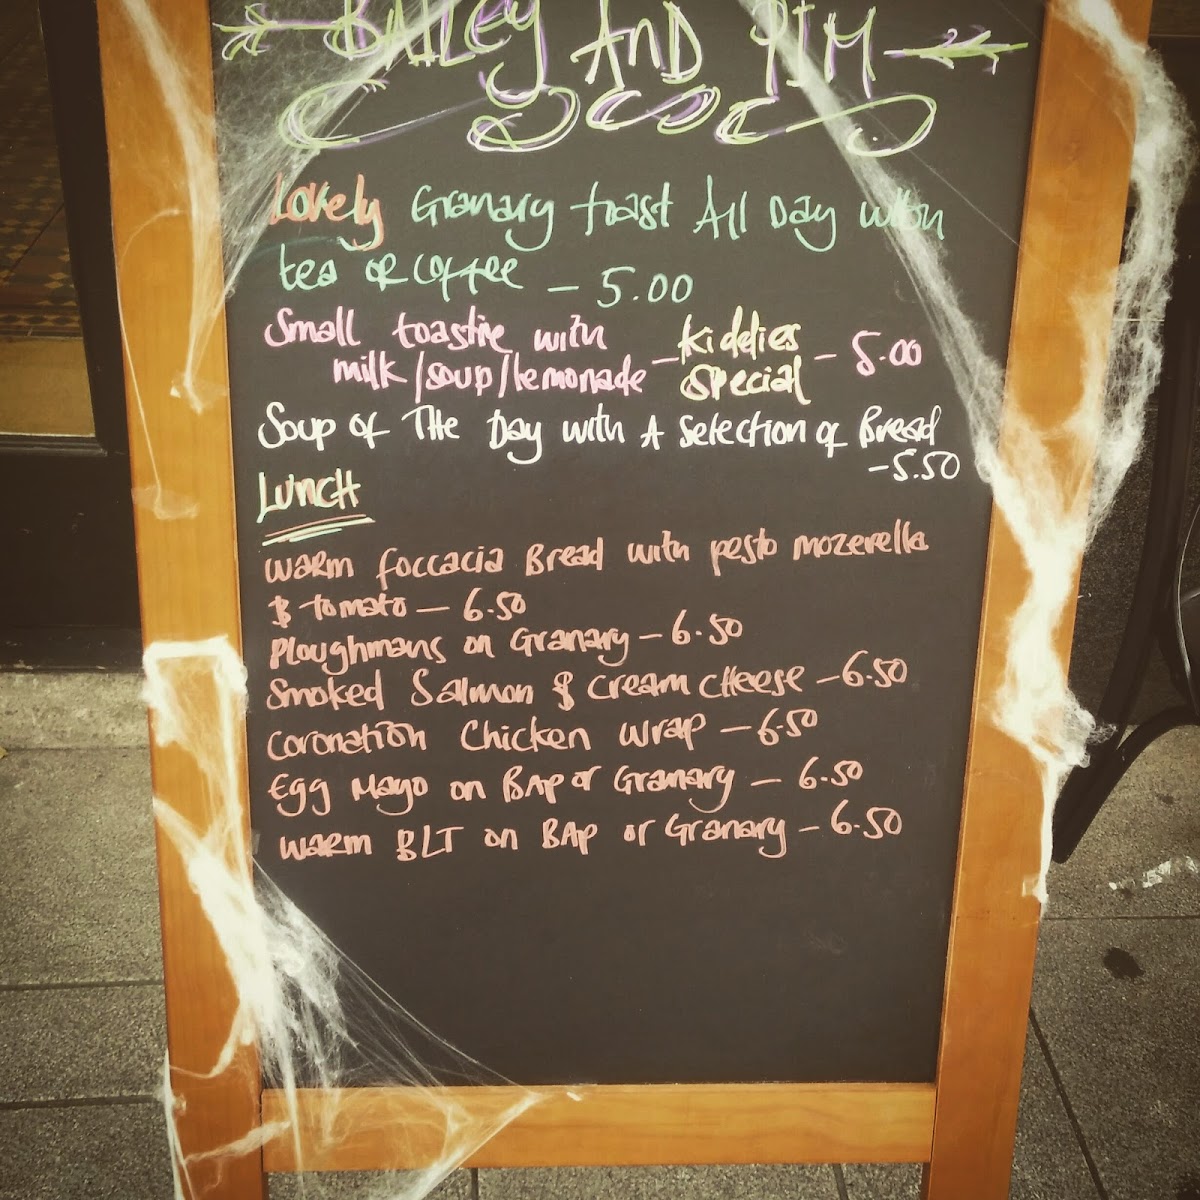 BAILEY AND PIM
Lovely Granary toast All Day with
tea or coffee - 5.00
Small toastie with
milk/soup/lemonade - kiddies special - 5.00
Soup of THe Day with A Selection of Bread
- 5.50
LUNCH
warm foccacia Bread with pesto mozerella
& tomato - 6.50
Ploughmans on Granary - 6.50
Smoked Salmon & cream cHeese - 6.50
Coronation Chicken wrap - 6.50
Egg Mayo on BAp or Granary - 6.50
warm BLT on BAp or Granary - 6.50